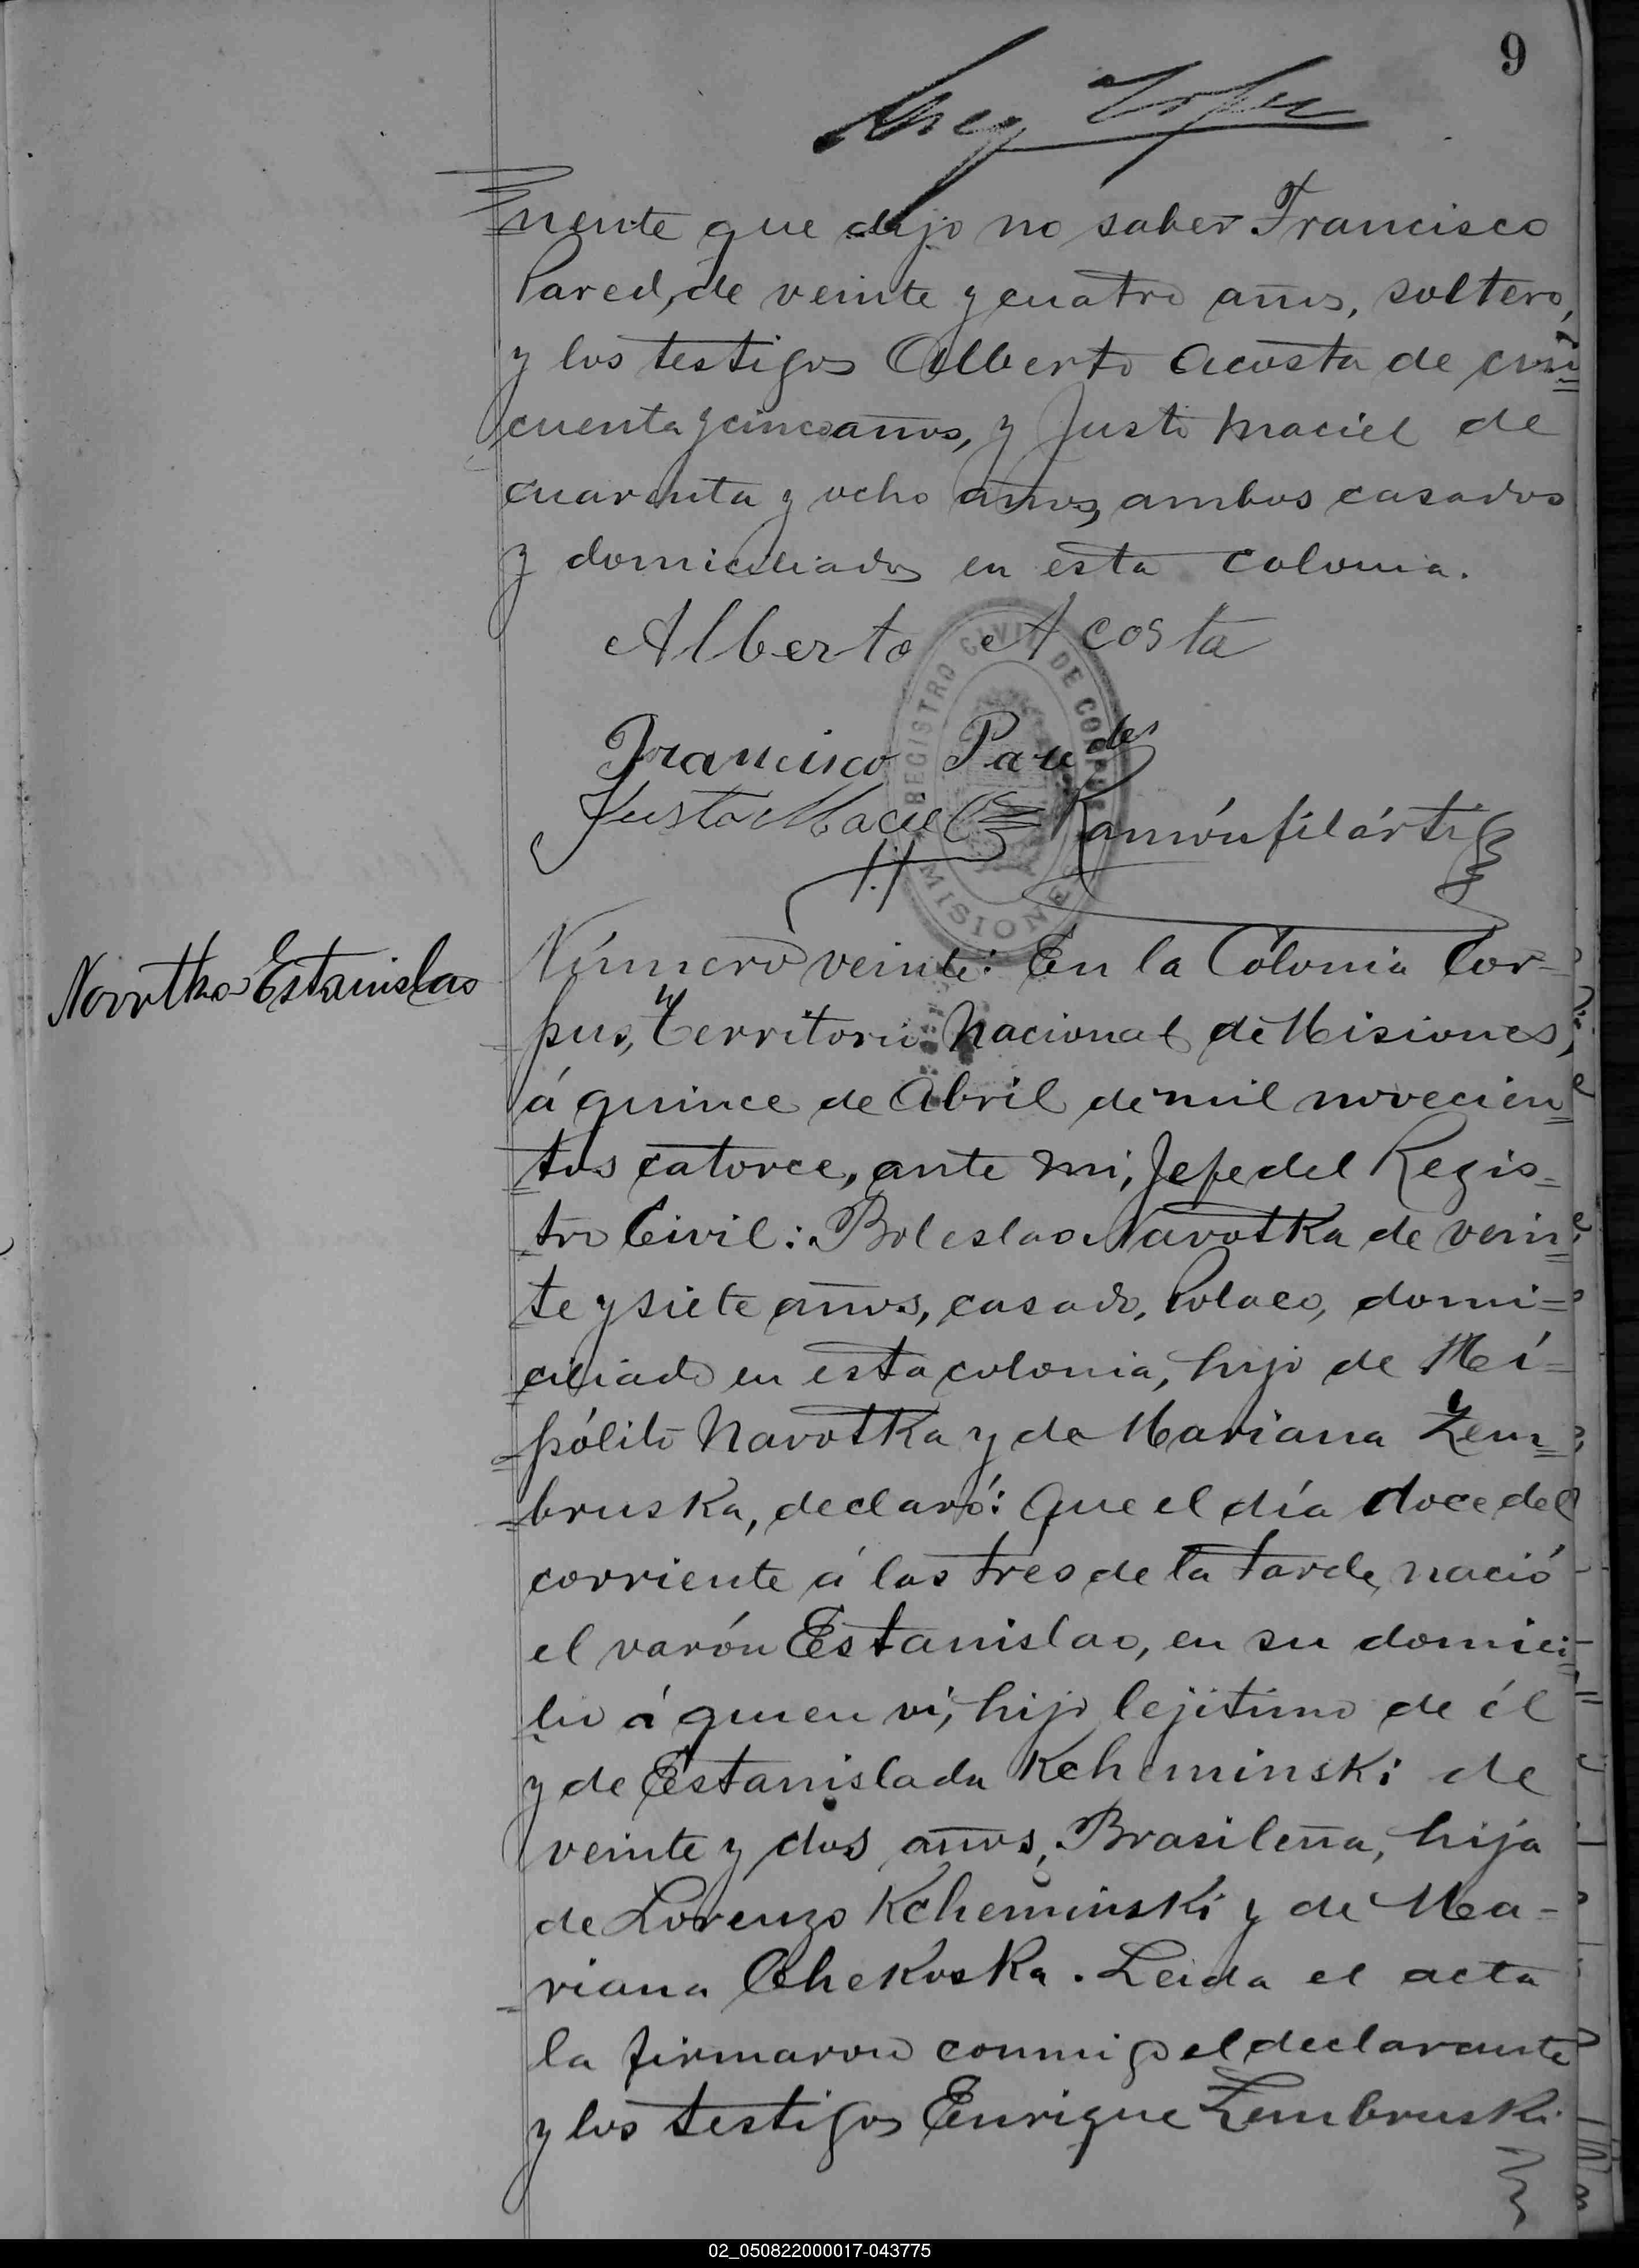 9
nente que dijo no saber Francisco
Pared, de veinte y cuatro años, soltero,
y los testigos Alberto Acosta de cin=
cuenta y cinco años, y Justo Maciel de
cuarenta y ocho años, ambos casados
y domiciliados en esta colonia.
Alberto Acosta
Francisco Paredes
Justo Maciel Ramón
REGISTRO CIVIL DE CORPUS
MISIONES
Estanislao
Número veinte: En la Colonia Cor-
pus, Territorio Nacional de Misiones,
á quince de Abril de mil novecien=
tos catorce, ante mi, Jefe del Regis=
tro Civil: Boleslao Navotka de vein=
te y siete años, casado, Polaco, domi=
ciliado en esta colonia, hijo de Hi=
pólito Navotka y de Mariana Zem=
bruska, declaró: Que el día doce del
corriente á las tres de la tarde, nació
el varón Estanislao, en su domici=
lio á quien vi, hijo lejitimo de él
y de Estanislada Kcheminski de
veinte y dos años, Brasileña, hija
de Lorenzo Kcheminski y de Ma=
riana Chekoska. Leida el acta
la firmaron conmigo el declarante
y los testigos Enrique Zembruski
02_050822000017-043775